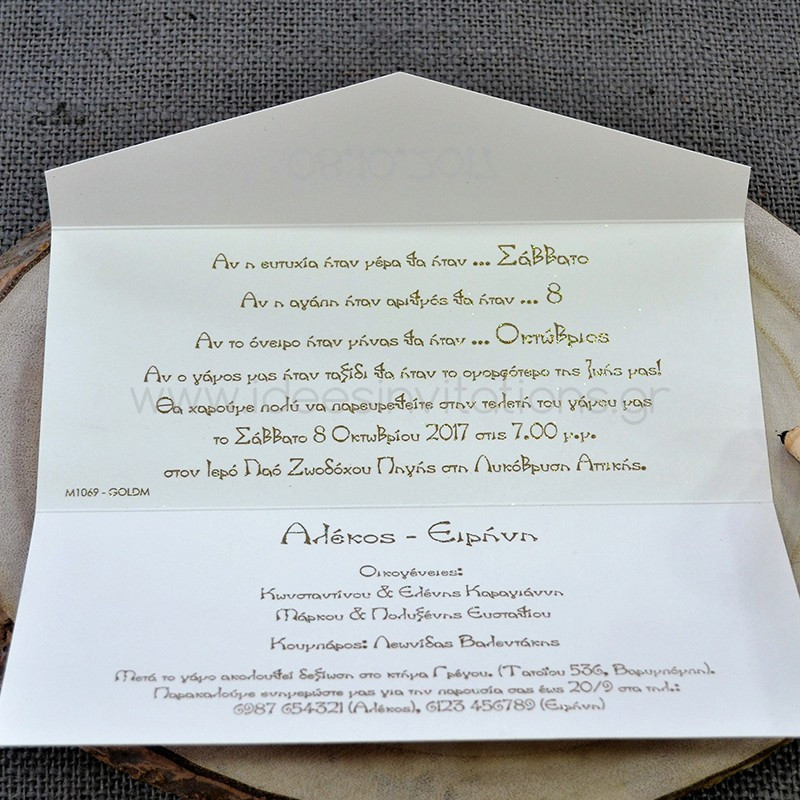 Αν η ευτυχία ήταν μέρα θα ήταν ... Σάββατο
Αν η αγάπη ήταν αριθμός θα ήταν ... 8
Αν το όνειρο ήταν μήνας θα ήταν ... Οκτώβριος
Αν ο γάμος μας ήταν ταξίδι θα ήταν το ομορφότερο της ζωής μας!
www.ideesinvitations.gr
Θα χαρούμε πολύ να παρευρεθείτε στην τελετή του γάμου μας
το Σάββατο 8 Οκτωβρίου 2017 στις 7.00 μ.μ.
στον Ιερό Ναό Ζωοδόχου Πηγής στη Λυκόβρυση Αττικής.
M1069 - GOLDM
Αλέκος - Ειρήνη
Οικογένειες:
Κωνσταντίνου & Ελένης Καραγιάννη
Μάρκου & Πολυξένης Ευσταθίου
Κουμπάρος: Λεωνίδας Βαλεντάκης
Μετά το γάμο ακολουθεί δεξίωση στο κτήμα Γρέγου. (Τατοΐου 536, Βαρυμπόμπη).
Παρακαλούμε ενημερώστε μας για την παρουσία σας έως 20/9 στα τηλ.:
6987 654321 (Αλέκος), 6123 456789 (Ειρήνη)